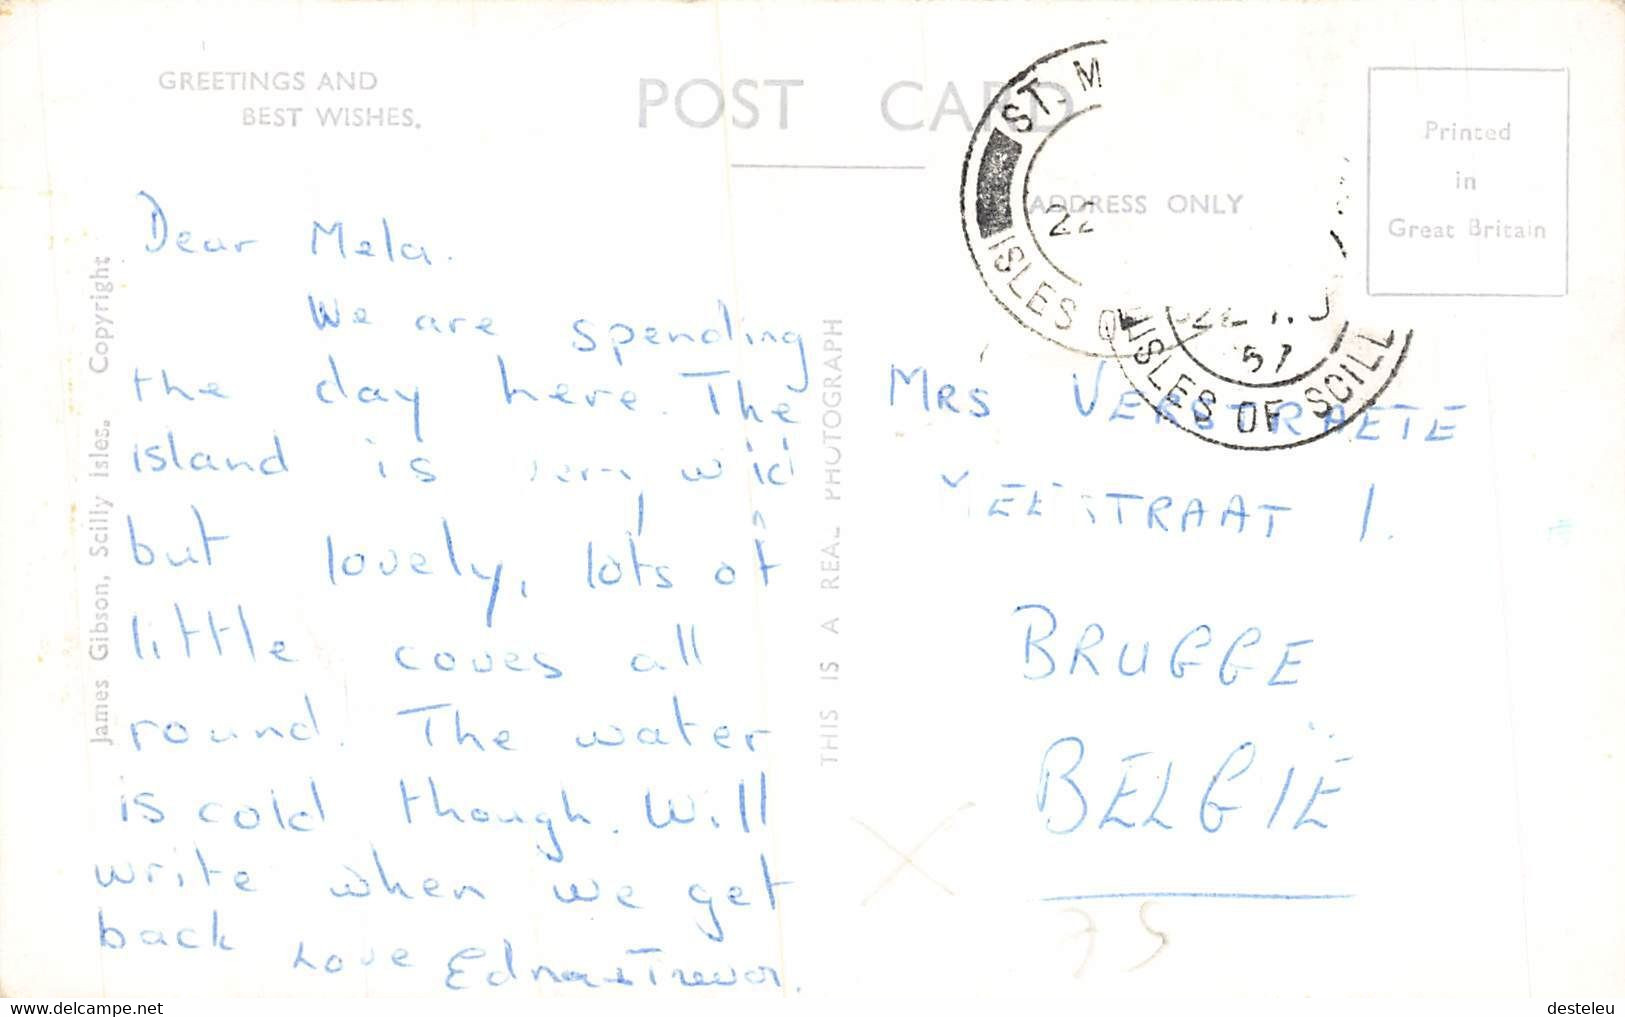 GREETINGS AND
BEST WISHES.
POST CARD
ADDRESS ONLY
Printed
in
Great Britain
ST. M
ISLES O
22
ISLES OF SCILL
57
James Gibson, Scilly Isles. Copyright
THIS IS A REAL PHOTOGRAPH
Dear Mela.
We are spending
the day here. The
island is very wild
but lovely, lots of
little coves all
round. The water
is cold though. Will
write when we get
back Love Edna & Trevor.
MRS VERSTRAETE
STRAAT 1.
BRUGGE
BELGIË
75
desteleu